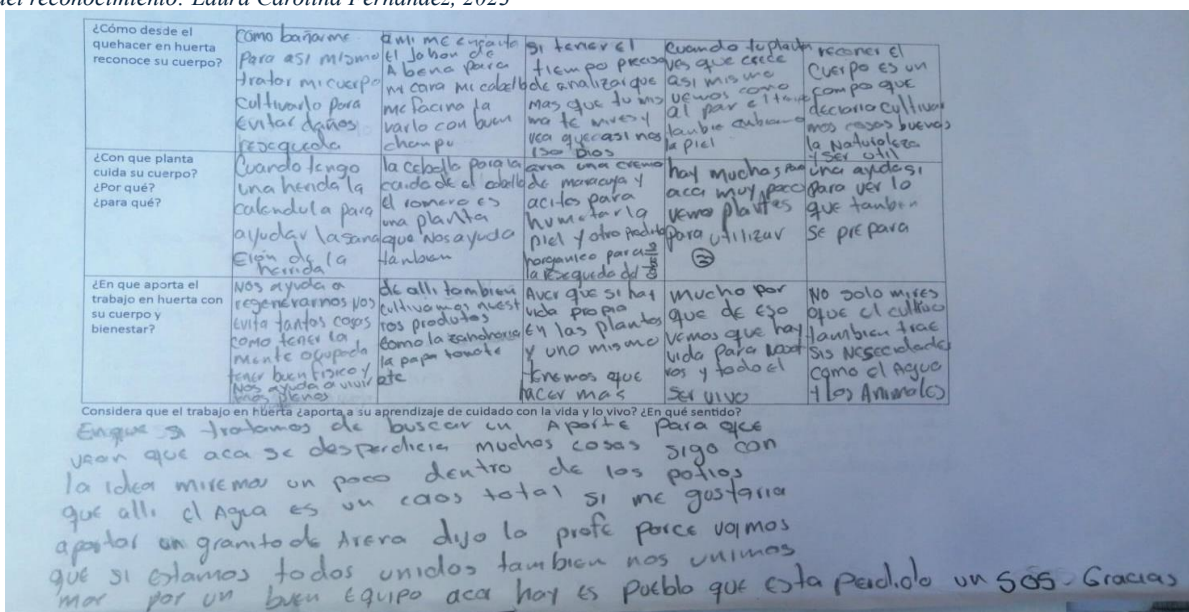 del reconocimiento: Laura Carolina Fernández, 2023
¿Cómo desde el
quehacer en huerta
reconoce su cuerpo?
como bañarme
Para asi mismo
tratar mi cuerpo
cultivarlo para
Evitar daños
resequeda
ami me encanta
El Jabon de
Abena para
mi cara mi cabello
me facina la
varlo con buen
champu
si tener el
tiempo preciso
de analizar que
mas que tu mis
ma te mires y
vea que casi nos
Dios
Cuando tu planta
ves que crece
asi mismo
vemos como
al par el
tanbie cubiamo
la piel
reconer el
Cuerpo es un
campo que
decirlo cultivar
mos cosas buenas
la Naturaleza
y ser util
¿Con que planta
cuida su cuerpo?
¿Por qué?
¿para qué?
Cuando tengo
una herida la
calendula para
ayudar la sana
cion de la
herida
la cebolla para la
caida de el cabello
el romero es
una planta
que Nos ayuda
tanbien
aria una crema
de maracuya y
acites para
humetar la
piel y otro
para
la resequeda del
hay muchas
aca muy poco
vemos plantas
para utilizar
una ayuda si
para ver lo
que tanben
se prepara
¿En que aporta el
trabajo en huerta con
su cuerpo y
bienestar?
Nos ayuda a
regenerarnos Nos
Evita tantos cosas
como tener la
mente ocupada
tener buen fisico y
Nos ayuda a vivir
mas plenos
de alli tambien
cultivamos nuest
ros produtos
como la zanahoria
la papa tomate
etc
Aver que si hay
vida propia
En las plantas
y uno mismo
tenemos que
hacer mas
Mucho por
que de eso
vemos que hay
vida para
y todo el
Ser vivo
No solo mires
que el cultivo
tambien trae
sis Nesecidades
como el Agua
y los Animales
Considera que el trabajo en huerta ¿aporta a su aprendizaje de cuidado con la vida y lo vivo? ¿En qué sentido?
Enque si tratamos de buscar un Aporte para que
vean que aca se desperdicia muchas cosas sigo con
la idea miremos un poco dentro de los patios
que alli el Agua es un caos total si me gustaria
aportar un granito de Arena dijo la profe porce vajmos
que si estamos todos unidos tambien nos unimos
mar por un buen Equipo aca hay es pueblo que esta perdido un SOS Gracias